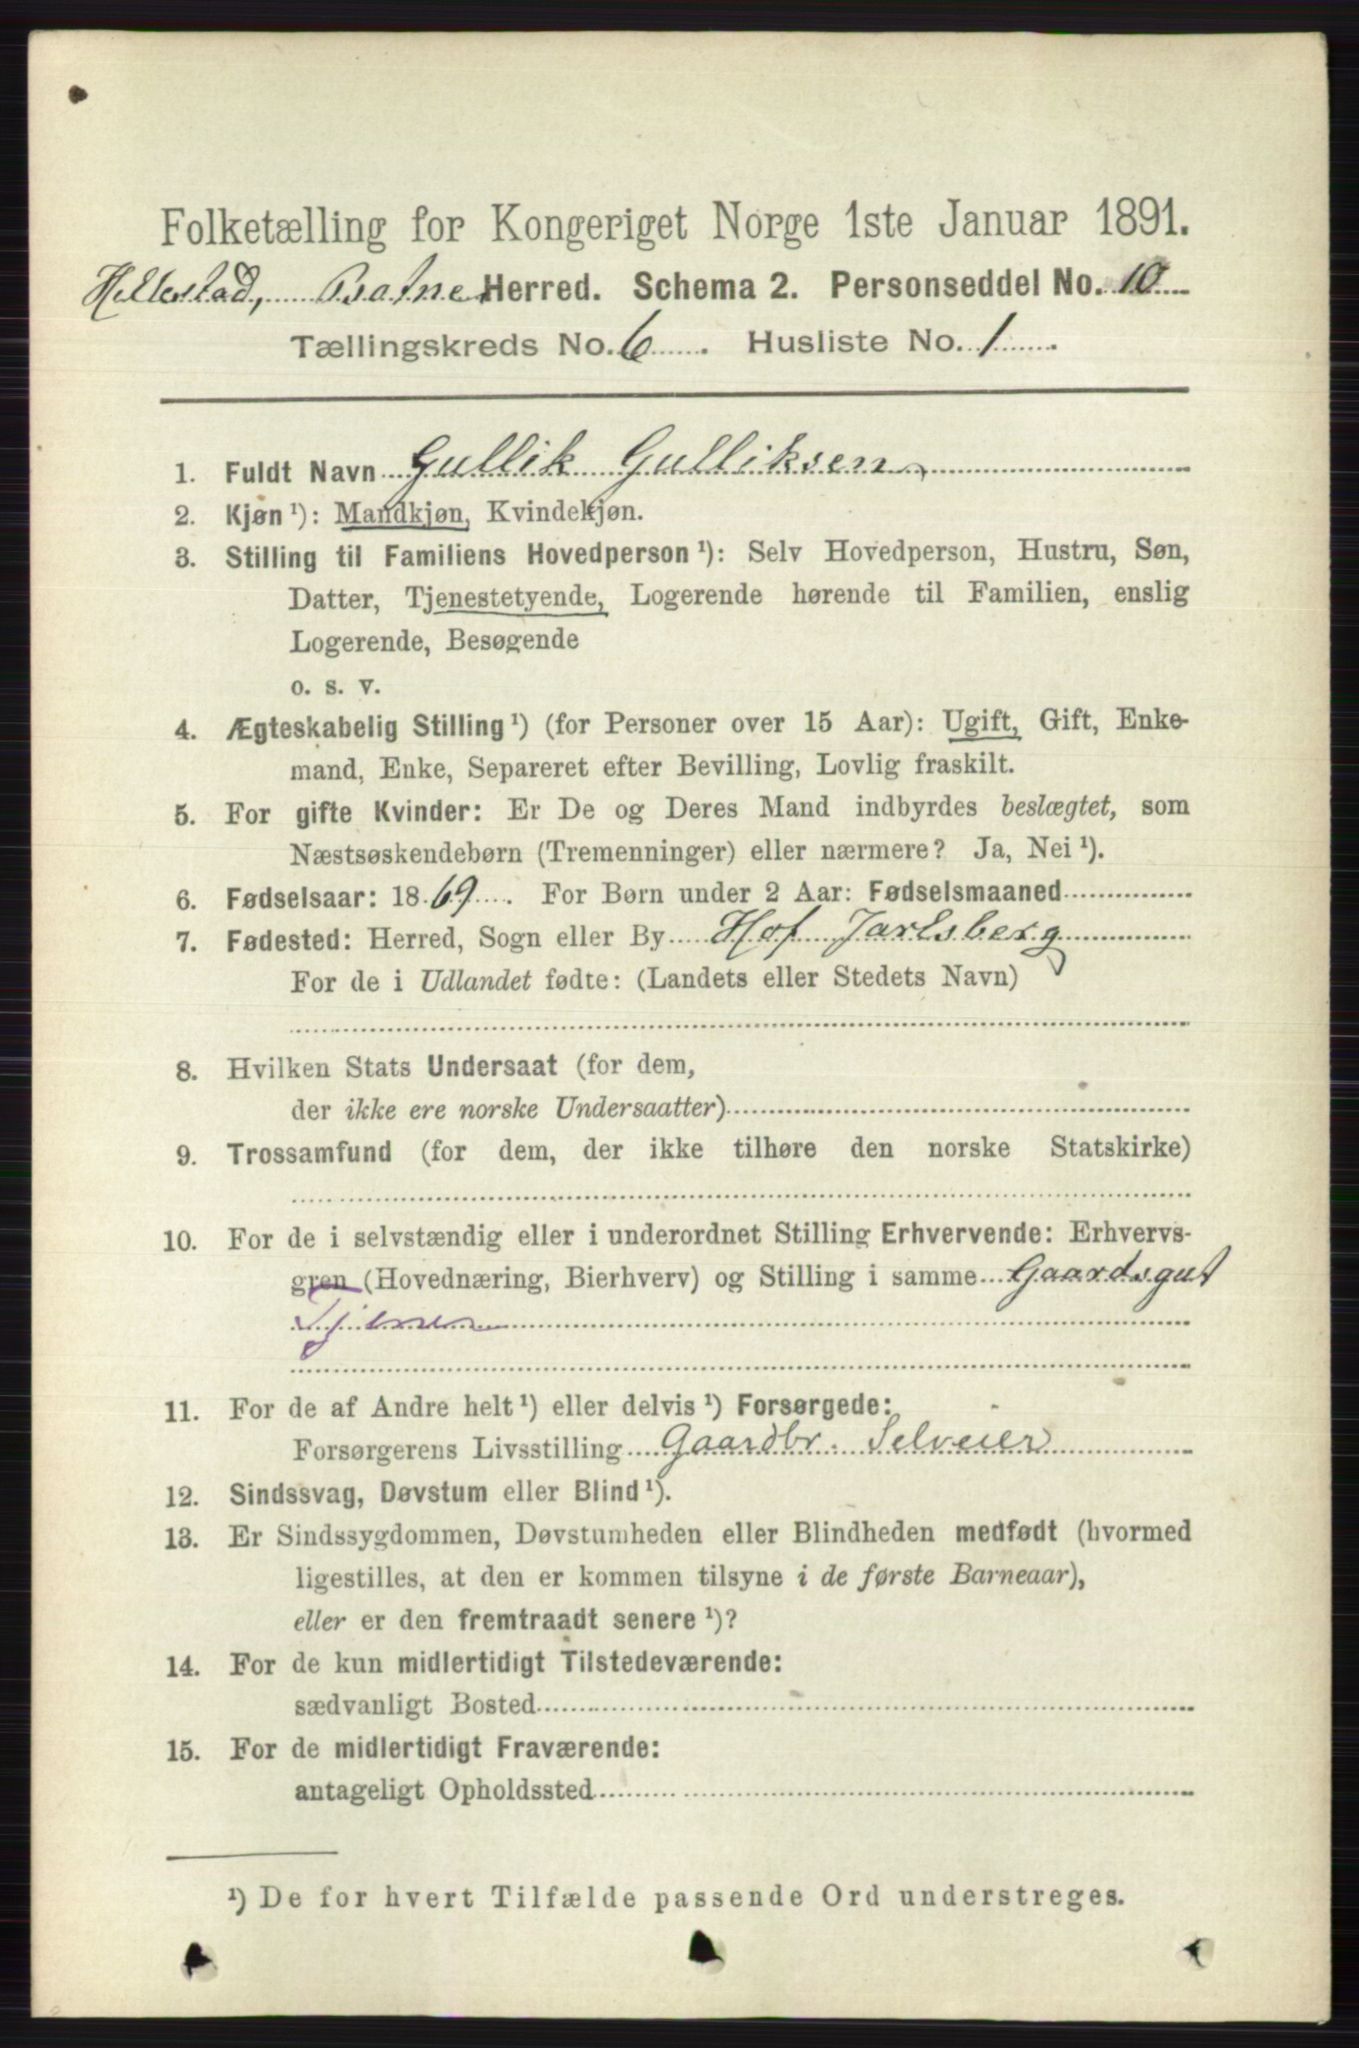 Folketælling for Kongeriget Norge 1ste Januar 1891.
Hillestad, Botne Herred. Schema 2. Personseddel No. 10
Tællingskreds No. 6. Husliste No. 1.
1. Fuldt Navn Gullik Gulliksen
2. Kjøn ¹): Mandkjøn, Kvindekjøn.
3. Stilling til Familiens Hovedperson ¹): Selv Hovedperson, Hustru, Søn,
Datter, Tjenestetyende, Logerende hørende til Familien, enslig
Logerende, Besøgende
o. s. v.
4. Ægteskabelig Stilling ¹) (for Personer over 15 Aar): Ugift, Gift, Enke-
mand, Enke, Separeret efter Bevilling, Lovlig fraskilt.
5. For gifte Kvinder: Er De og Deres Mand indbyrdes beslægtet, som
Næstsøskendebørn (Tremenninger) eller nærmere? Ja, Nei ¹).
6. Fødselsaar: 1869. For Børn under 2 Aar: Fødselsmaaned
7. Fødested: Herred, Sogn eller By Hof Jarlsberg
For de i Udlandet fødte: (Landets eller Stedets Navn)
8. Hvilken Stats Undersaat (for dem,
der ikke ere norske Undersaatter)
9. Trossamfund (for dem, der ikke tilhøre den norske Statskirke)
10. For de i selvstændig eller i underordnet Stilling Erhvervende: Erhvervs-
gren (Hovednæring, Bierhverv) og Stilling i samme Gaardsgut
Tjener
11. For de af Andre helt ¹) eller delvis ¹) Forsørgede:
Forsørgerens Livsstilling Gaardbr. Selveier
12. Sindssvag, Døvstum eller Blind ¹).
13. Er Sindssygdommen, Døvstumheden eller Blindheden medfødt (hvormed
ligestilles, at den er kommen tilsyne i de første Barneaar),
eller er den fremtraadt senere ¹)?
14. For de kun midlertidigt Tilstedeværende:
sædvanligt Bosted
15. For de midlertidigt Fraværende:
antageligt Opholdssted
¹) De for hvert Tilfælde passende Ord understreges.